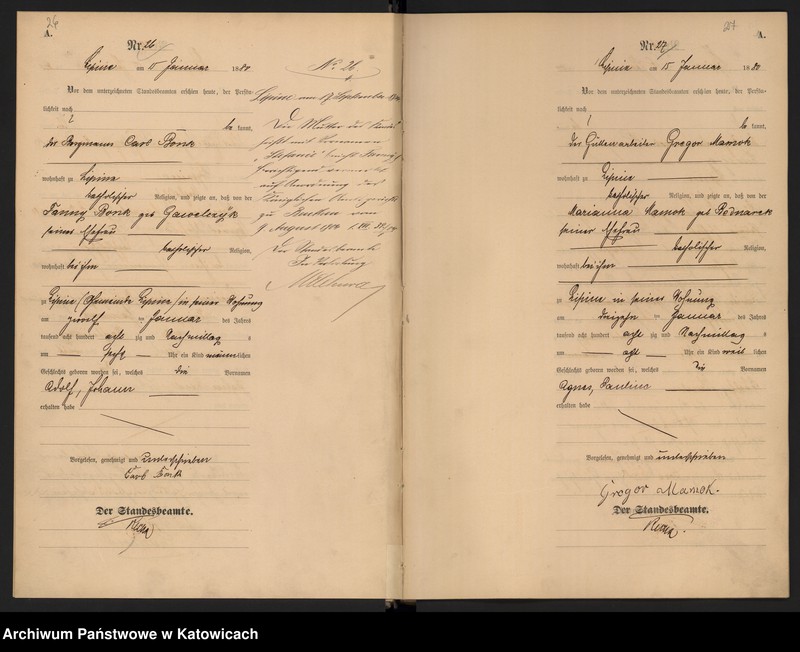 26
A.
Nr. 26
Lipine am 15 Januar 1880
Vor dem unterzeichneten Standesbeamten erschien heute, der Persön-
lichkeit nach
be kannt,
der Bergmann Carl Bonk
wohnhaft zu Lipine
katholischer Religion, und zeigte an, daß von der
Fanny Bonk geb
seiner Ehefrau
katholischer Religion,
wohnhaft bei ihm
zu Lipine /Gemeinde Lipine/ in seiner Wohnung
am zwölf ten Januar des Jahres
tausend acht hundert acht zig und Nachmittag s
um sechs Uhr ein Kind männlichen
Geschlechts geboren worden sei, welches die Vornamen
Adolf, Johann
erhalten habe
Vorgelesen, genehmigt und unterschrieben
Carl Bonk
Der Standesbeamte.
No 26.
Lipine am 17 September
Die Mutter des Kindes
führt mit Vornamen
auf Anordnung des
Königlichen Amtsgerichts
zu Beuthen vom
9. August
Der Standesbeamte
In Vertretung
27
A.
Nr. 27
Lipine am 15 Januar 1880
Vor dem unterzeichneten Standesbeamten erschien heute, der Persön-
lichkeit nach
be kannt,
der Hüttenarbeiter Gregor Mamok
wohnhaft zu Lipine
katholischer Religion, und zeigte an, daß von der
Marianna Mamok geb Bednarek
seiner Ehefrau
katholischer Religion,
wohnhaft bei ihm
zu Lipine in seiner Wohnung
am dreizehn ten Januar des Jahres
tausend acht hundert acht zig und Nachmittag s
um acht Uhr ein Kind weib lichen
Geschlechts geboren worden sei, welches die Vornamen
Agnes, Pauline
erhalten habe
Vorgelesen, genehmigt und unterschrieben
Gregor Mamok.
Der Standesbeamte.
Archiwum Państwowe w Katowicach